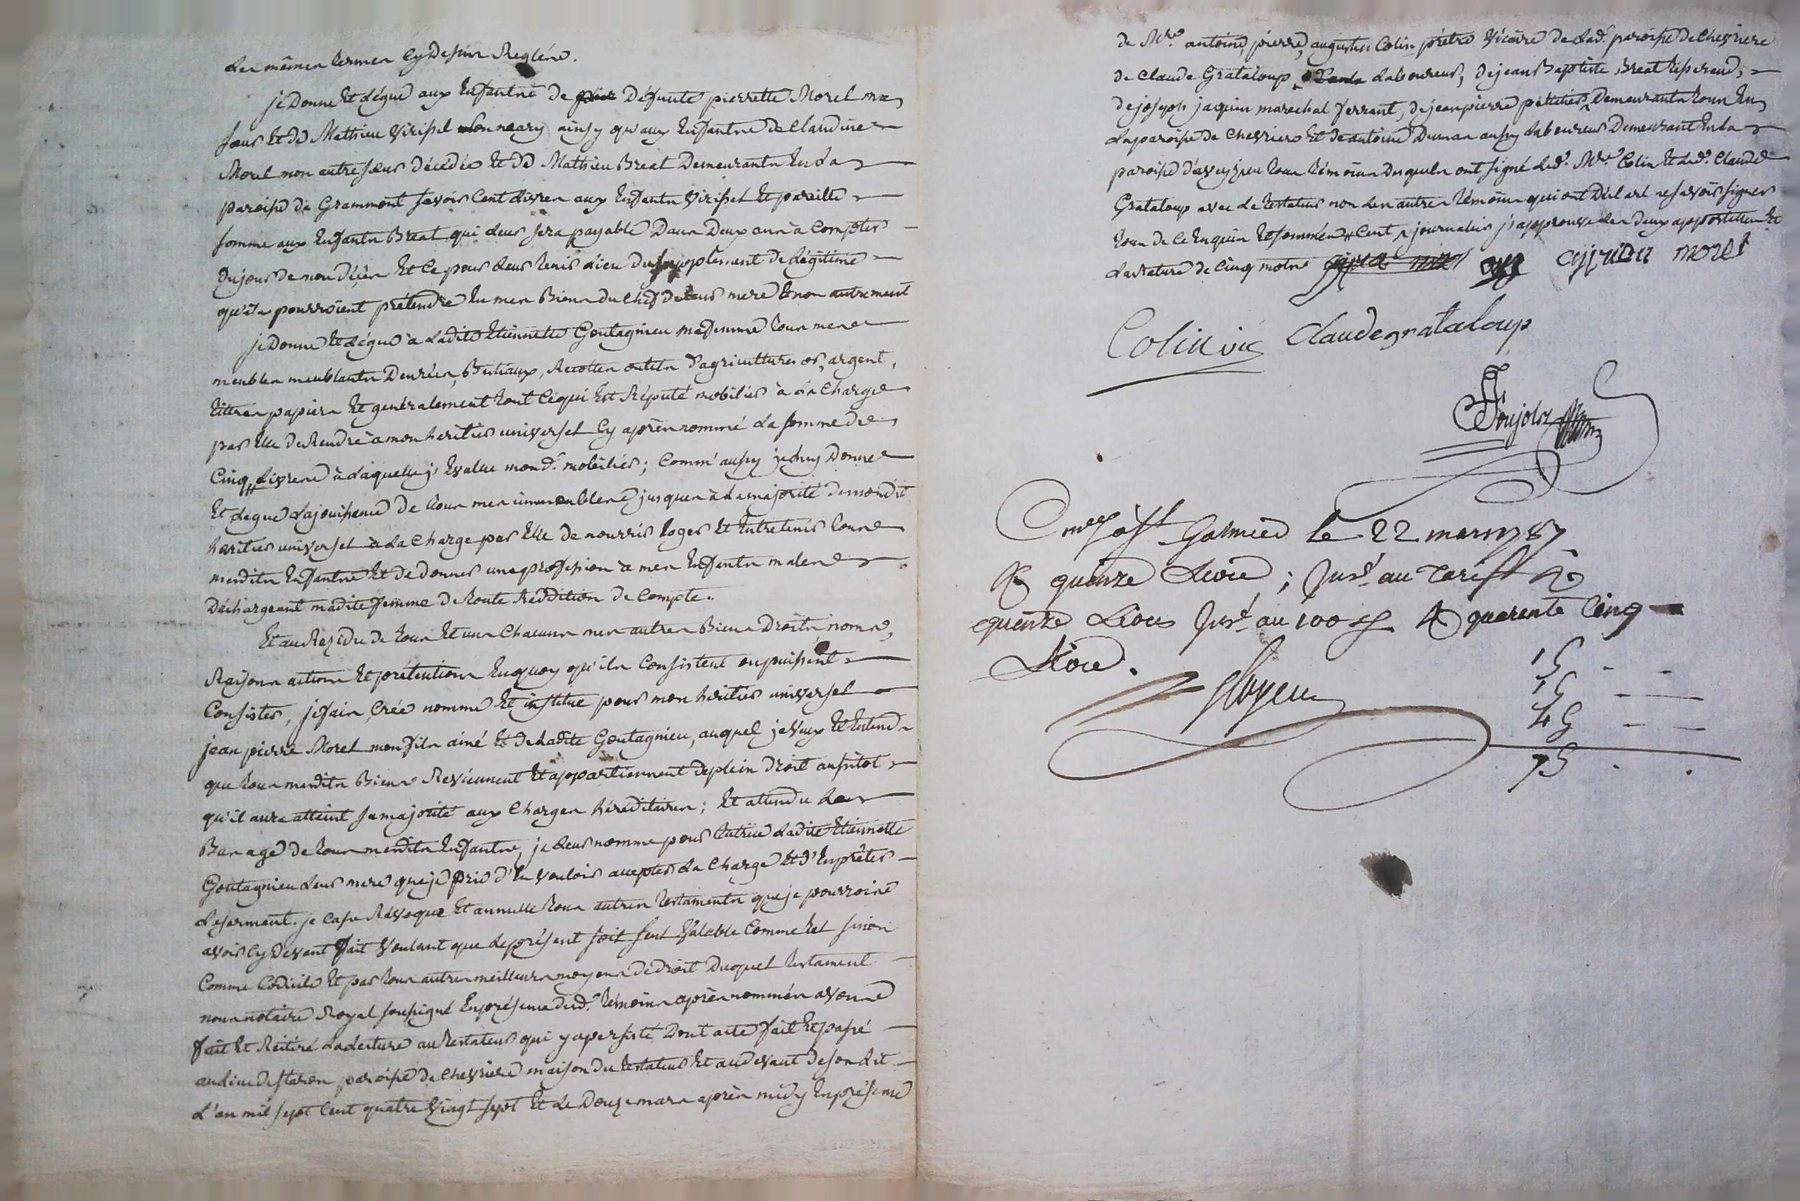 les mêmes termes cy dessus Reglés.
je Donne et Légue aux Enfants de Défunte pierrette Morel ma
sœur et de Mathieu Virissel ainsy qu'aux Enfants de Claudine
Morel mon autre sœur décédée et de Mathieu Breat Demeurants en la
paroisse de Grammont savoir Cent Livres aux Enfants Virissel et pareille
somme aux Enfants Breat qui leur sera payable Dans Deux ans à Compter
Du jour de mon décès et ce pour leur tenir Lieu Du supplément de Légitime
qu'ils pourroient prétendre en mes Biens du chef de leur mere et non autrement
je Donne et Légue à Ladite Etiennette Goutagnieu ma femme tous mes
meubles meublants Denrées, Bestiaux, Recoltes outils d'agriculture or, argent,
titres papiers et generalement tout ce qui est Réputé mobilier à la Charge
par Elle de Rendre à mon heritier universel Cy après nommé La somme de
Cinq Livres à laquelle j'Evalue mond. mobilier; Comm' aussy je luy Donne
et Legue La jouissance de tous mes immeubles jusques à la majorité de mondit
heritier universel à la charge par Elle de nourrir loger et Entretenir tous
mesdits Enfants et de donner une profession à mes Enfants males
Déchargeant madite femme de toute Reddition de Compte..
Et au Residu de tous et uns Chacuns mes autres Biens Droits noms,
Raisons actions et prétentions Enquoy qu'ils Consistent ou puissent
Consister, je fais, Crée nomme et institue pour mon heritier universel
jean pierre Morel mon fils ainé et de Ladite Goutagnieu, auquel je Veux et Entend
que tous mesdits Biens Reviennent et appartiennent de plein Droit aussitot
qu'il aura atteint sa majorité aux Charges héréditaires; Et attendu Le
Bas age de tous mesdits Enfants, je leur nomme pour tutrice Ladite Etiennette
Goutagnieu leur mere que je prie d'En vouloir accepter La Charge et d'En prêter
Le serment. je Casse Révoque et annulle tous autres testaments que je pourrois
avoir Cy Devant fait Voulant que le présent soit seul Valable Comme tel sinon
Comme Codicile et par tous autres meilleurs moyens de droit Duquel testament
nous notaire Royal soussigné En présence desd. témoins après nommés avons
fait et Réitéré La lecture au testateur qui y a persisté Dont acte fait et passé
au lieu de paroisse de Chevriere maison du testateur et au devant de son lit
L'an mil sept Cent quatre Vingt sept et le Douze mars après midy En présence
de Mre. antoine, pierre, augustin Colin prêtre Vicaire de Lad. paroisse de Chevriere
de Claude Grataloup Laboureur, de jean Baptiste Breat tisserand,
de joseph jaquin marechal ferrant, de jean pierre pelletier Demeurants tous En
La paroisse de Chevriere et de antoine Dumas aussy Laboureur Demeurant En la
paroisse d'aveyzieu tous témoins Desquels ont signé Led. Mre. Colin et Led. Claude
Grataloup avec Le testateur non les autres témoins qui ont Déclaré ne savoir signer
tous de ce Enquis et sommés Cent journalier j'approuve les deux apostilles et
La rature de Cinq mots morel
Colin vic Claude grataloup
Poujols
Con.lé à St. Galmier le 22 mars 87
R quinze Livres; Ins.é au tarif R
quinze Livres Ins.é au 100 R quarente Cinq
Livres.
15
15
45
75